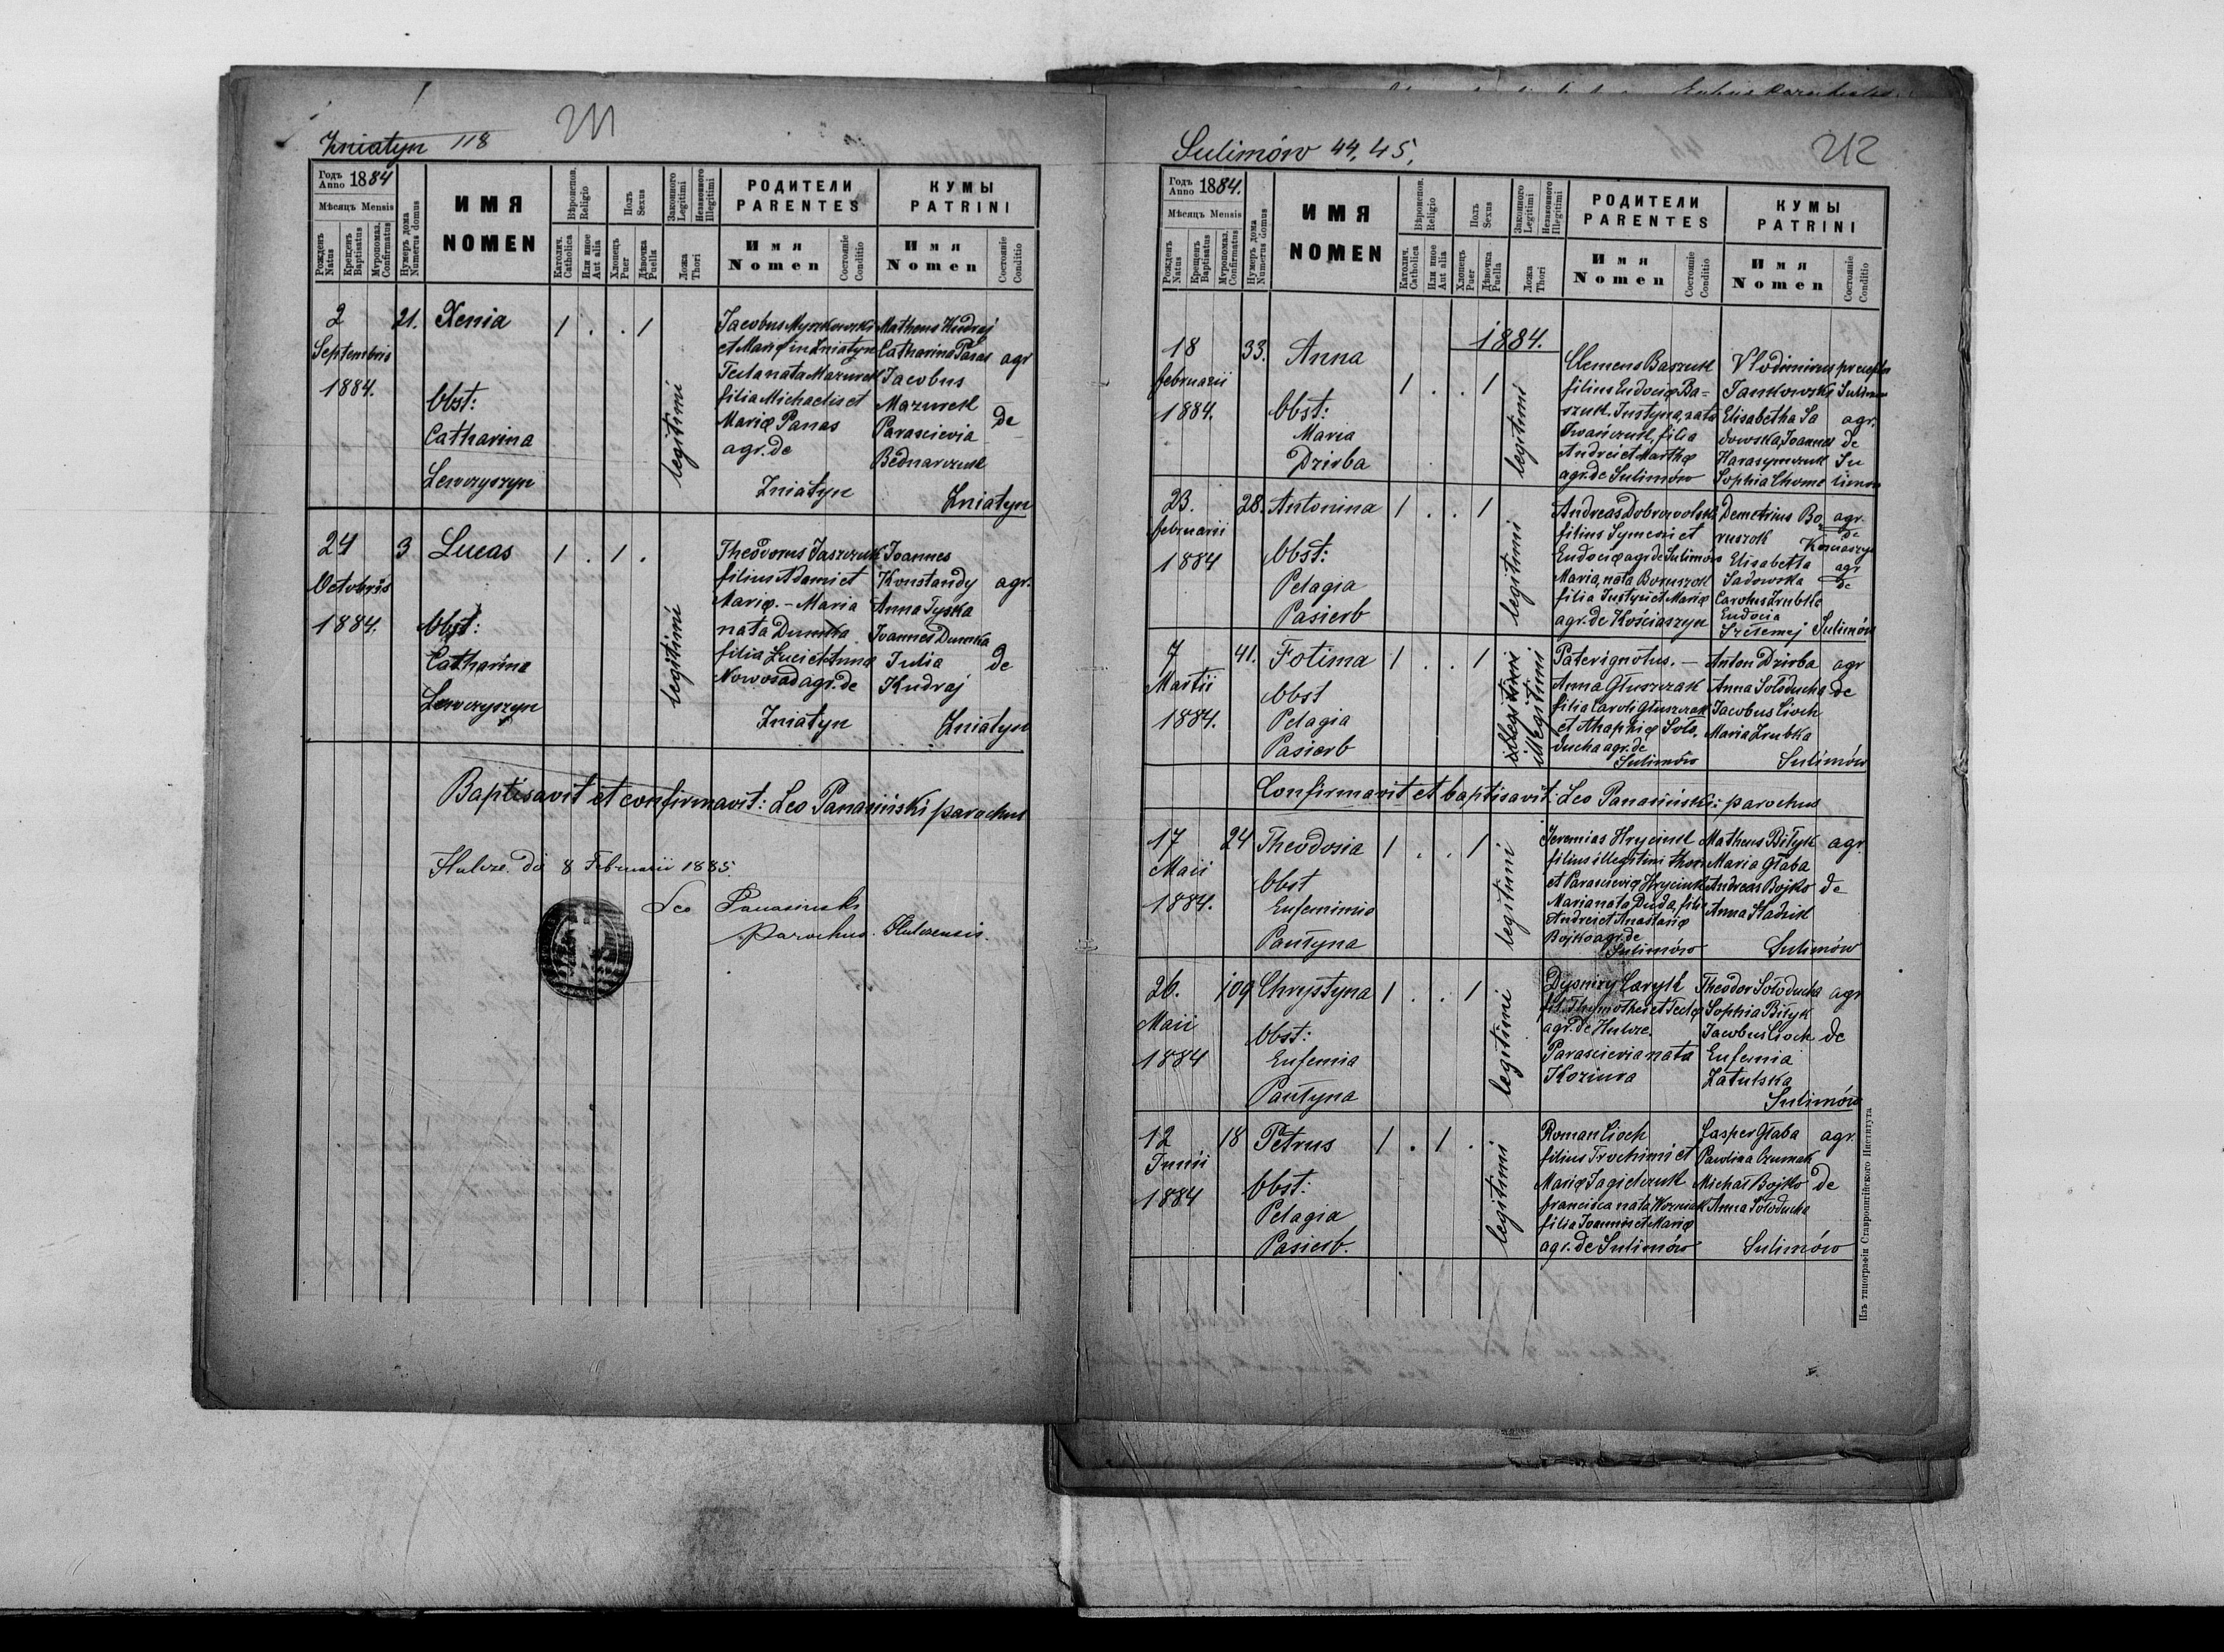 Żniatyn 118
211
Годъ Anno 1884
Мѣсяцъ Mensis
Рожденъ Natus
Крещенъ Baptisatus
Мѵропомаз. Confirmatus
Нумеръ дома Numerus domus
ИМЯ
NOMEN
Вѣроисповѣд. Religio
Католич. Catholica
Или иное Aut alia
Полъ Sexus
Хлопецъ Puer
Дѣвочка Puella
Законного Legitimi
Незаконного Illegitimi
Ложа Thori
РОДИТЕЛИ
PARENTES
Имя
Nomen
Состояніе Conditio
КУМЫ
PATRINI
Имя
Nomen
Состояніе Conditio
2
Septembris
1884.
21.
Xenia
Obst:
Catharina
Lewczyszyn
1 . . 1
legitimi
Jacobus Myszkowski
et Mariæ in Żniatyn
Tecla nata Mazurek
filia Michaelis et
Mariæ Panas
agr. de
Żniatyn
Matheus Kudraj
Catharina Panas agr
Jacobus
Mazurek
Parascievia de
Bednarczuk
Żniatyn
24
Octobris
1884.
3
Lucas
Obst:
Catharina
Lewczyszyn
1 . 1 .
legitimi
Theodorus Jaszczuk
filius Adami et
Mariæ. - Maria
nata Dumka
filia Lucie et Annæ
Nowosad agr. de
Żniatyn
Joannes
Konstandy agr.
Anna Tyska
Joannes Dumka
Julia de
Kudraj
Żniatyn
Baptisavit et confirmavit: Leo Panasiński parochus
Hulcze. dὀ 8 Februarii 1885.
Leo Panasinski
parochus Hulczensis.
Sulimów 44, 45,
212
Годъ Anno 1884.
Мѣсяцъ Mensis
Рожденъ Natus
Крещенъ Baptisatus
Мѵропомаз. Confirmatus
Нумеръ дома Numerus domus
ИМЯ
NOMEN
Вѣроисповѣд. Religio
Католич. Catholica
Или иное Aut alia
Полъ Sexus
Хлопецъ Puer
Дѣвочка Puella
Законного Legitimi
Незаконного Illegitimi
Ложа Thori
РОДИТЕЛИ
PARENTES
Имя
Nomen
Состояніе Conditio
КУМЫ
PATRINI
Имя
Nomen
Состояніе Conditio
1884.
18
februarii
1884.
33.
Anna
Obst:
Maria
Dzirba
1 . . 1
legitimi
Clemens Baszuk
filius Eudociæ Ba-
szuk. Justyna, nata
Iwańczuk, filia
Andrei et Marthæ
agr. de Sulimów
Vlodimirus
Jankowski Sulimów
Elisabetha Sa agr.
dowska, Joannes de
Harasymczuk Su
Sophia Chome limów
23.
februarii
1884
28.
Antonina
Obst:
Pelagia
Pasierb
1 . . 1
legitimi
Andreas Dobrowolski
filius Symeoni et
Eudociæ agr de Sulimów
Maria, nata Boruszok
filia Justyni et Mariæ
agr. de Kościaszyn
Demetrius Bo agr.
ruszok de Kościaszyn
Elisabetta agr
Sadowska de
Carolus Zrubka
Eudocia
Szełemej Sulimów
7
Martii
1884.
41.
Fotima
Obst
Pelagia
Pasierb
1 . . 1
illegitimi
illegitimi
Pater ignotus. -
Anna Głuszczak
filia Caroli Głuszczak
et Ahaphiæ Soło.
ducha agr. de
Sulimów
Anton Dzirba agr
Anna Sołoducha de
Jacobus Cioch
Maria Zrubka
Sulimów
Confirmavit et baptisavit: Leo Panasiński: parochus
17
Maii
1884.
24
Theodosia
Obst
Eufemimia
Pautyna
1 . . 1
legitimi
Jeremias Hryciuk
filius illegitimi thori
et Parascieviæ Hryciuk
Maria nata Duda, fili
Andrei et Anastasiæ
Bojko agr. de
Sulimów
Matheus Biłyk agr.
Maria Głaba
Andreas Bojko de
Anna Stadnik
Sulimów
26.
Maii
1884
109
Chrystyna
Obst:
Eufemia
Pautyna
1 . . 1
legitimi
Dysmizy Caryk
fil. Thymothei et Teclæ
agr. de Hulcze.
Parascievia nata
Koziura
Theodor Sołoducha agr
Sophia Biłyk
Jacobus Cioch de
Eufemia
Zatulska
Sulimów
12
Junii
1884
18
Petrus
Obst:
Pelagia
Pasierb.
1 . 1 .
legitimi
Roman Cioch
filius Trochimi et
Mariæ Jagielczuk
francisca nata Worniak
filia Joannis et Mariæ
agr. de Sulimów
Casper Głaba agr.
Pawlina Czumak
Michał Bojko de
Anna Sołoducha
Sulimów
Изъ типографіи Ставропигійского Института